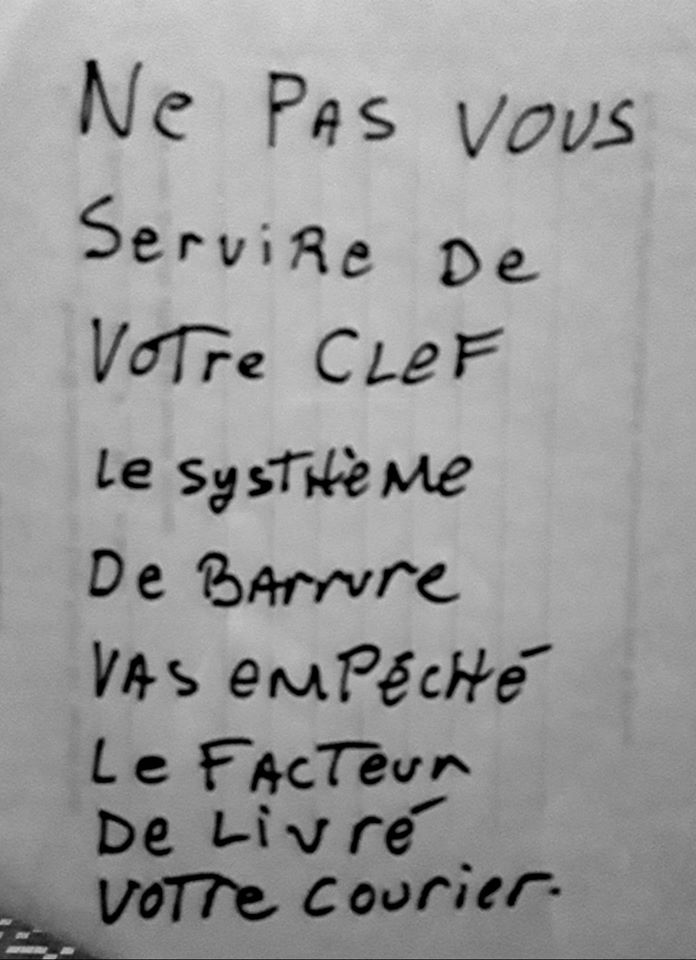 Ne PAS VOUS
ServiRe De
VoTre CLeF
Le sysTHèMe
De BArrure
VAS eMPéCHé
Le FACTeur
De Livré
VoTre courier.